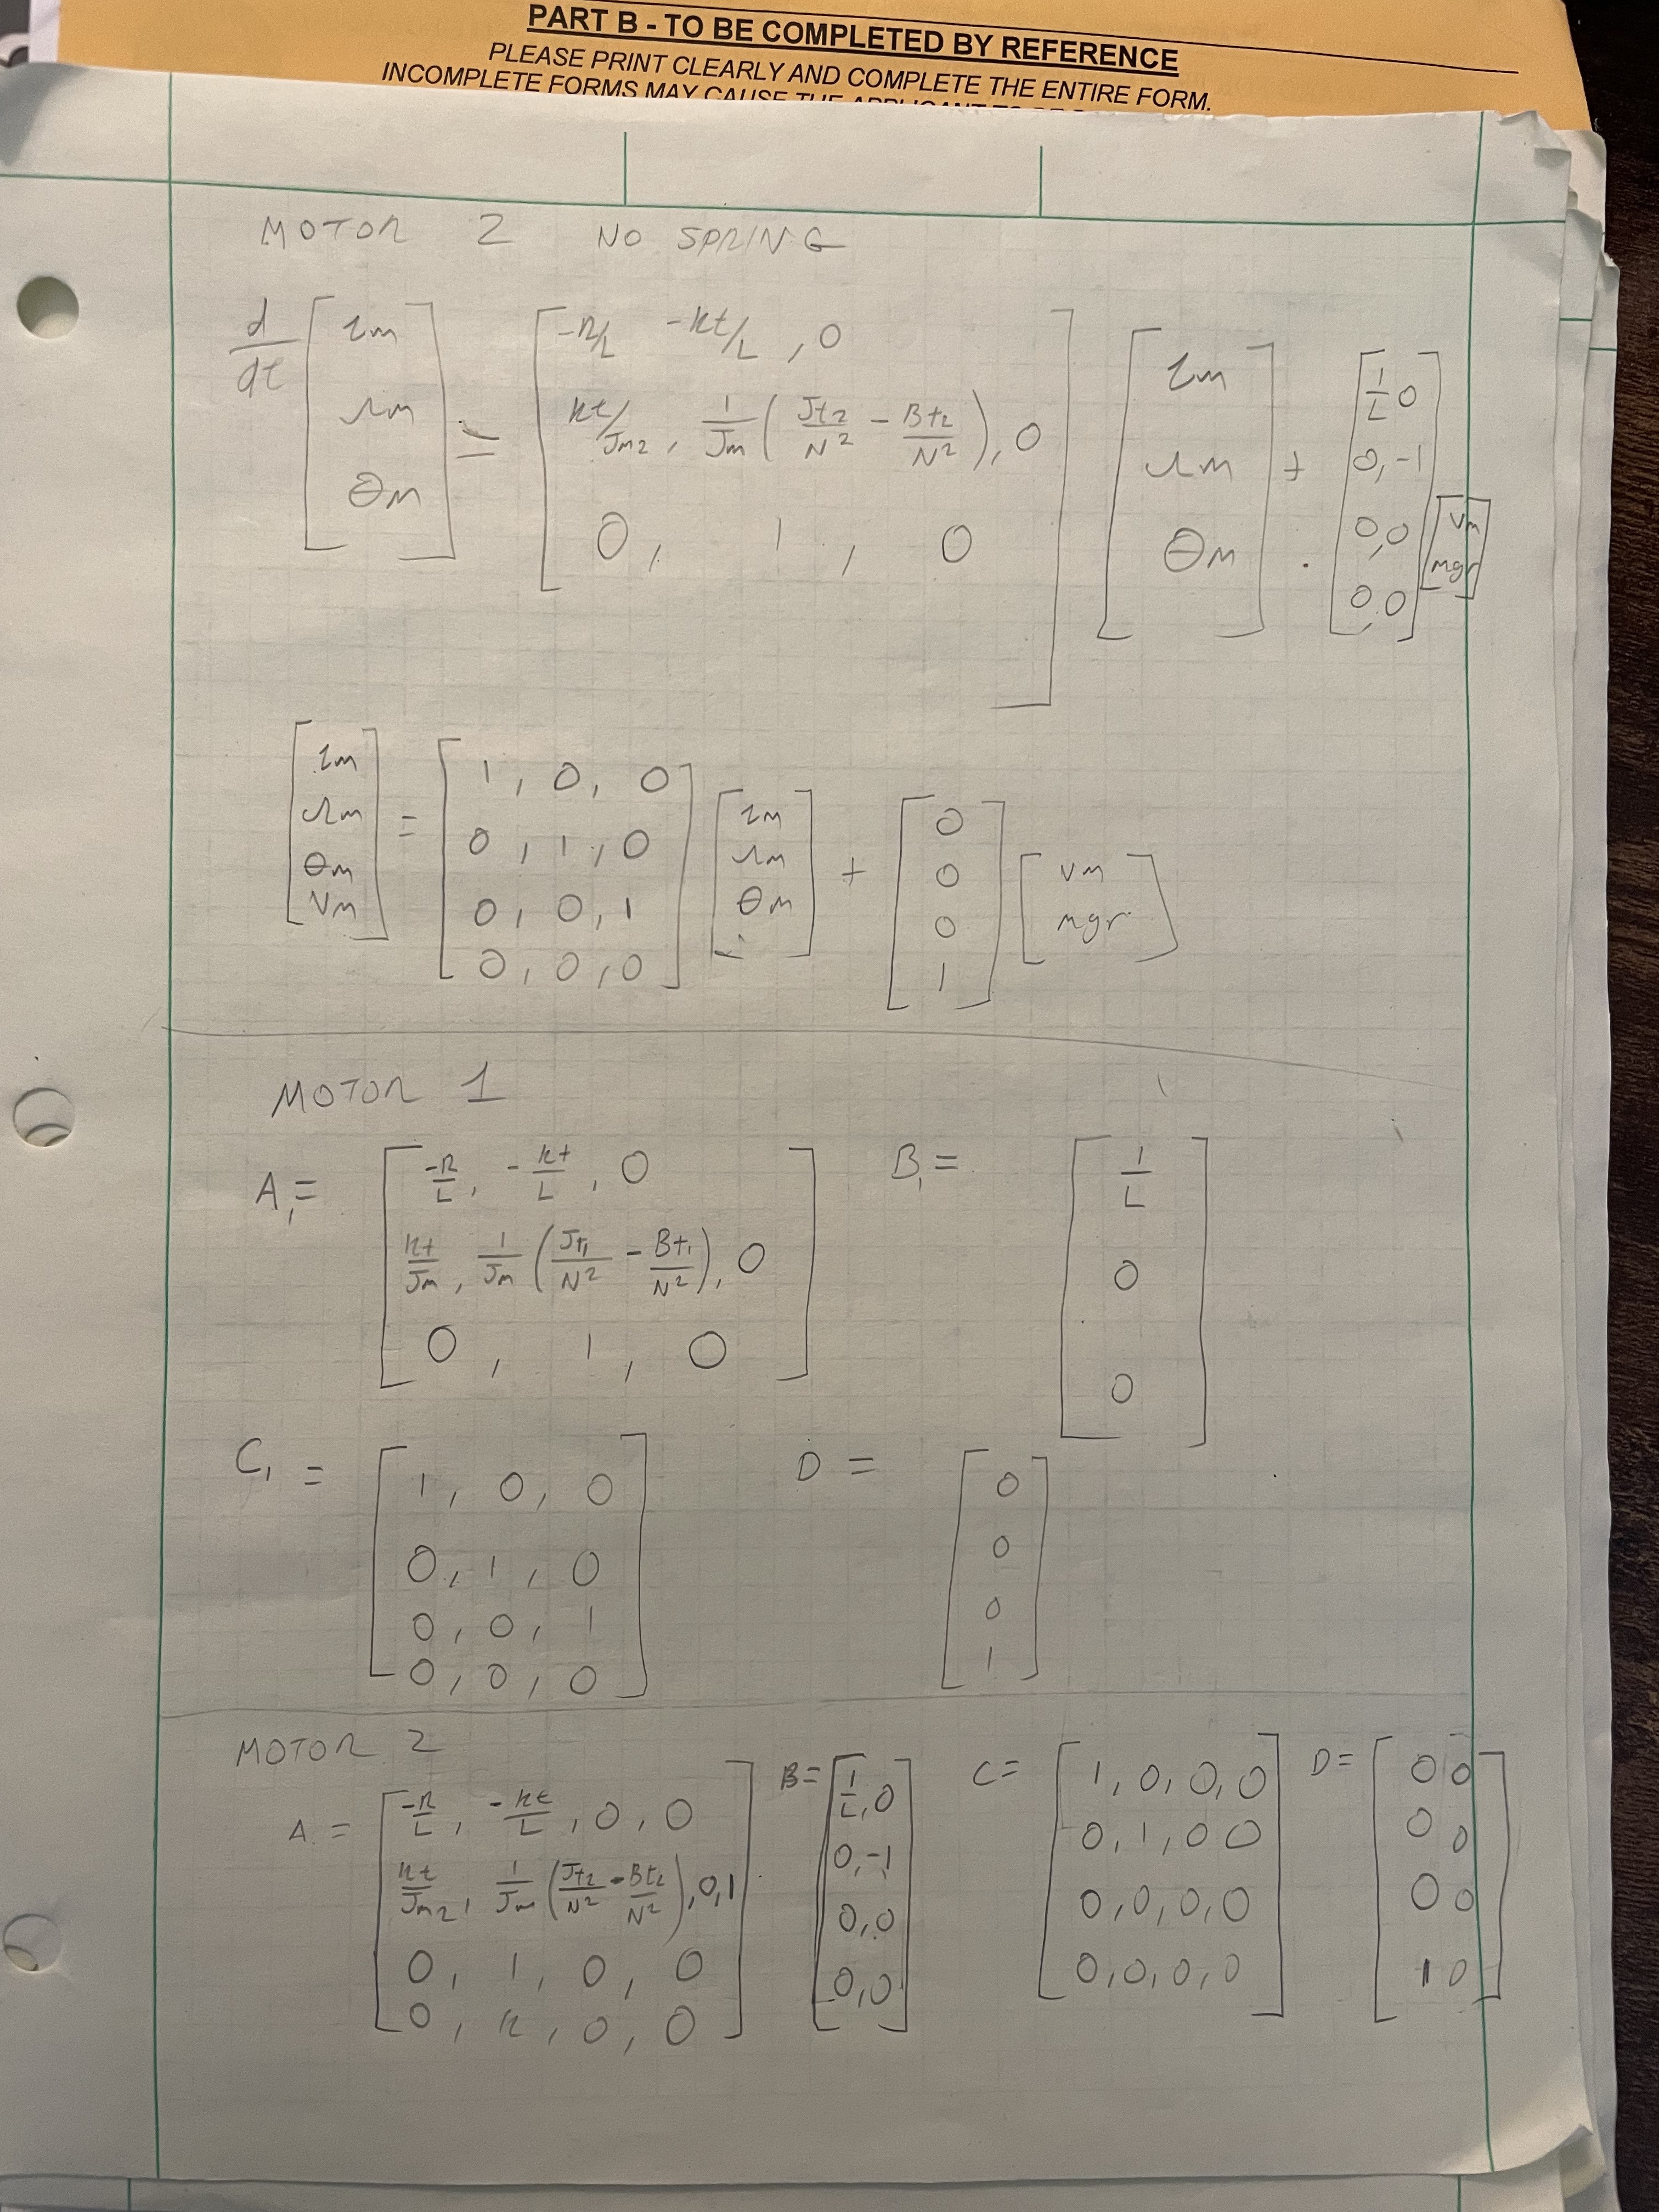 PART B - TO BE COMPLETED BY REFERENCE
PLEASE PRINT CLEARLY AND COMPLETE THE ENTIRE FORM.
INCOMPLETE FORMS MAY CAUSE THE APPLICANT TO BE
MOTOR 2 NO SPRING
d/dt [im Ωm θm] = [-R/L -kt/L , 0
kt/Jm2 , 1/Jm ( Jt2/N² - Bt2/N² ), 0
0 , 1 , 0] [im Ωm θm] + [1/L 0
0, -1
0,0
0.0] [vm mgr]
[im Ωm θm Vm] = [1, 0, 0
0, 1, 0
0, 0, 1
0, 0, 0] [im Ωm θm] + [0 0 0 1] [vm mgr]
MOTOR 1
A1 = [-R/L, -kt/L, 0
kt/Jm, 1/Jm (Jt1/N² - Bt1/N²), 0
0, 1, 0]
B1 = [1/L 0 0]
C1 = [1, 0, 0
0, 1, 0
0, 0, 1
0, 0, 0]
D = [0 0 0 1]
MOTOR 2
A = [-R/L, -kt/L, 0, 0
kt/Jm2, 1/Jm (Jt2/N² - Bt2/N²), 0, 1
0, 1, 0, 0
0, k, 0, 0]
B = [1/L, 0
0, -1
0, 0
0, 0]
C = [1, 0, 0, 0
0, 1, 0 0
0, 0, 0, 0
0, 0, 0, 0]
D = [0 0
0 0
0 0
1 0]